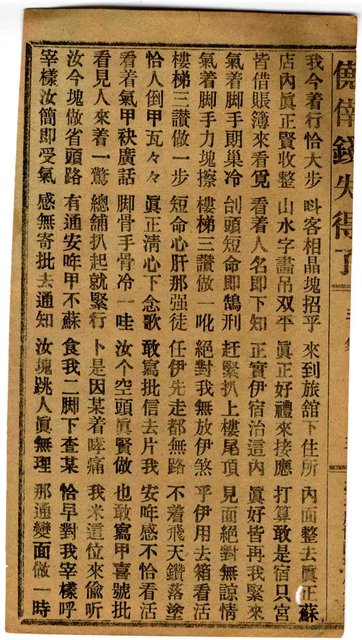 僥倖錢失得了
我今着行恰大步 呌客相晶塊招乎 來到旅舘下住所 內面整去真正蘇
店內真正賢收整 山水字畫吊双平 真正好禮來接應 打算敢是宿只宮
皆借賬簿來看覓 看着人名即下知 正實伊宿治這內 真好皆再我緊來
氣着脚手朗巢冷 刣頭短命即鵠刑 赶緊扒上樓尾頂 見面絕對無諒情
氣着脚手力塊擦 樓梯三讚做一吪 絕對我無放伊煞 乎伊用去箱看活
樓梯三讚做一步 短命心肝那强徒 任伊先走都無路 不着飛天鑽落塗
恰人倒甲瓦々々 眞正清心下念歌 敢寫批信去片我 安哖感不恰看活
看着氣甲袂廣話 脚骨手骨冷一哇 汝个空頭眞賢做 也敢寫甲喜號批
看見人來着一驚 總舖扒起就緊行 卜是因某着哮痛 我米這位來偸听
汝今塊做省頭路 有通安哖甲不蘇 食我二脚下查某 恰早對我宰樣呼
宰樣汝簡即受氣 感無寄批去通知 汝塊跳人眞無理 那通變面做一時